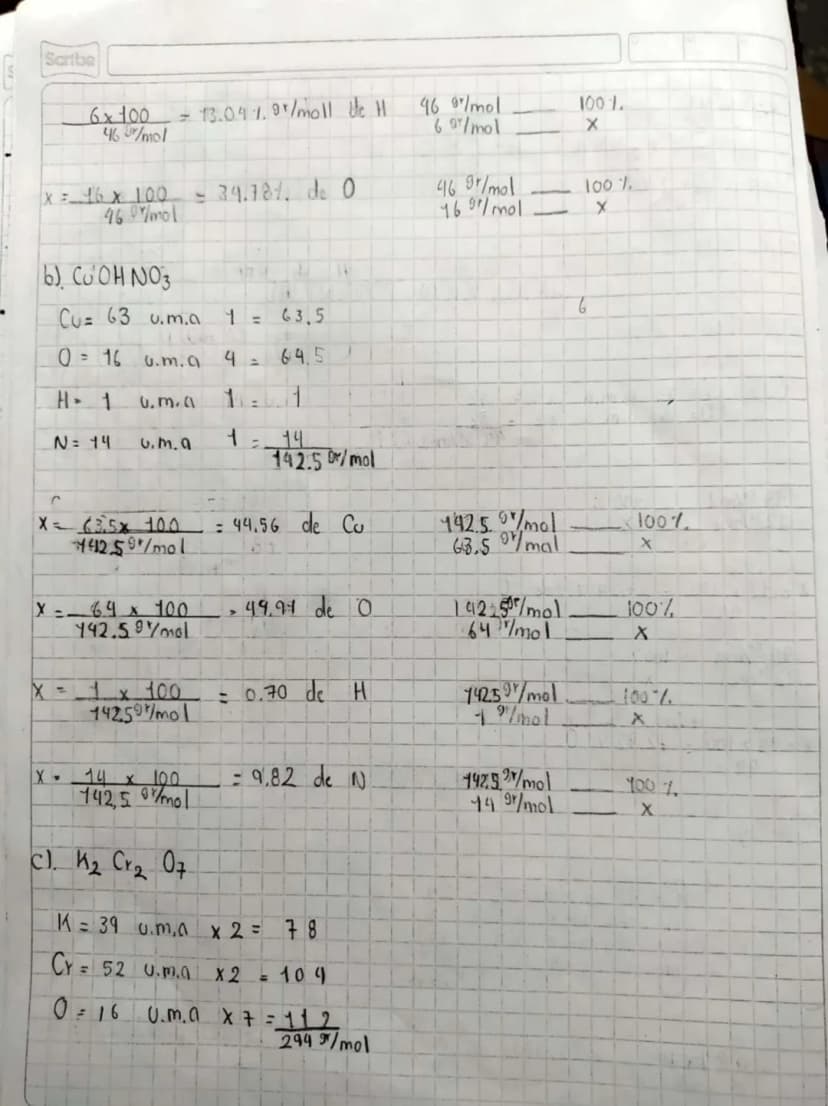 Scribe
6 x 100 / 46 gr/mol = 13.04 %. gr/moll de H 46 gr/mol ___ 100 %.
6 gr/mol ___ X
x = 16 x 100 / 46 gr/mol = 34.78 %. de O 46 gr/mol ___ 100 %.
16 gr/mol ___ X
b). CuOHNO3
Cu= 63 u.m.a 1 = 63,5
O = 16 u.m.a 4 = 64,5
H= 1 u.m.a 1 = 1
6
N= 14 u.m.a 1 = 14
142.5 gr/mol
X= 63,5x 100 / 142.5 gr/mol = 44,56 de Cu 142.5 gr/mol ___ 100 %.
63,5 gr/mol ___ X
X = 64 x 100 / 142.5 gr/mol = 49,91 de O 142,5 gr/mol ___ 100 %
64 gr/mol ___ X
X = 1 x 100 / 142,5 gr/mol = 0.70 de H 142,5 gr/mol ___ 100 %.
1 gr/mol ___ X
X = 14 x 100 / 142,5 gr/mol = 9,82 de N 142,5 gr/mol ___ 100 %.
14 gr/mol ___ X
c). K2 Cr2 O7
K = 39 u.m.a x 2 = 78
Cr = 52 u.m.a x2 = 104
O = 16 u.m.a x 7 = 112
294 gr/mol